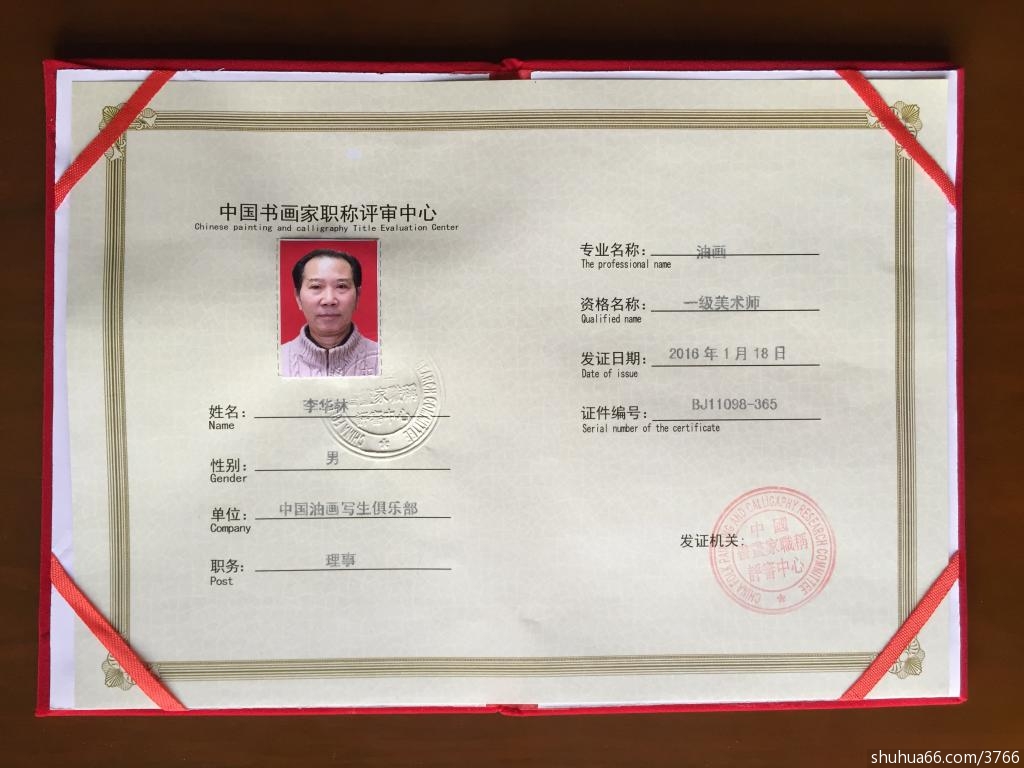 中国书画家职称评审中心
Chinese painting and calligraphy Title Evaluation Center
姓名: 李华林
Name
性别: 男
Gender
单位: 中国油画写生俱乐部
Company
职务: 理事
Post
家職稱
評審中心
ARCH COMMITTEE
CHINA FO
专业名称: 油画
The professional name
资格名称: 一级美术师
Qualified name
发证日期: 2016年1月18日
Date of issue
证件编号: BJ11098-365
Serial number of the certificate
发证机关:
CHINA FOLK PAINTING AND CALLIGRAPHY RESEARCH COMMITTEE
中國
書畫家職稱
評審中心
shuhua66.com/3766